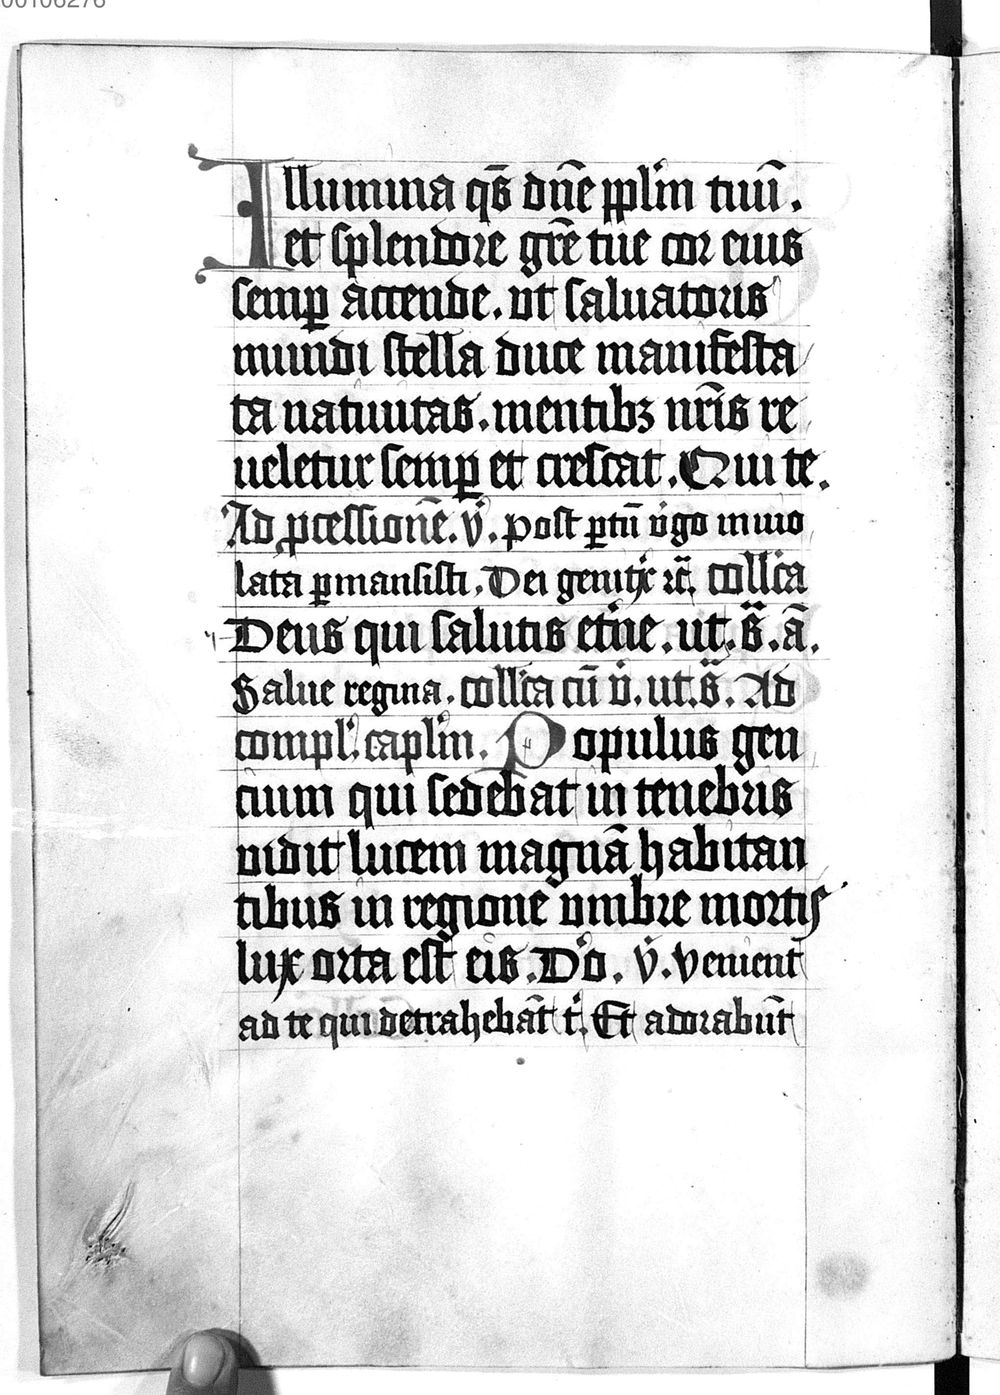 00106276
Illumina qs̄ dn̄e pplm̄ tuū.
et splendore gr̄e tue cor eius
semꝑ accende. ut saluatoris
mundi stella duce manifesta
ta natiuitas. mentibꝫ nr̄is re
ueletur semꝑ et crescat. Qui te.
Ad ꝓcessionē. v̄. post ꝑtū v̓go inuio
lata ꝑmansisti. Dei genit͛x ic̄. coll̓ca
Deus qui salutis et̓ne. ut. s̄. ā.
Salue regina. coll̓ca cū v̓. ut. s̄. Ad
compl̓. capl̓m. Populus gen
cium qui sedebat in tenebris
vidit lucem magnā habitan
tibus in regione vmbre mortis
lux orta est eis. Do̓. v̓. venient
ad te qui detrahebāt t͛. Et adorabūt